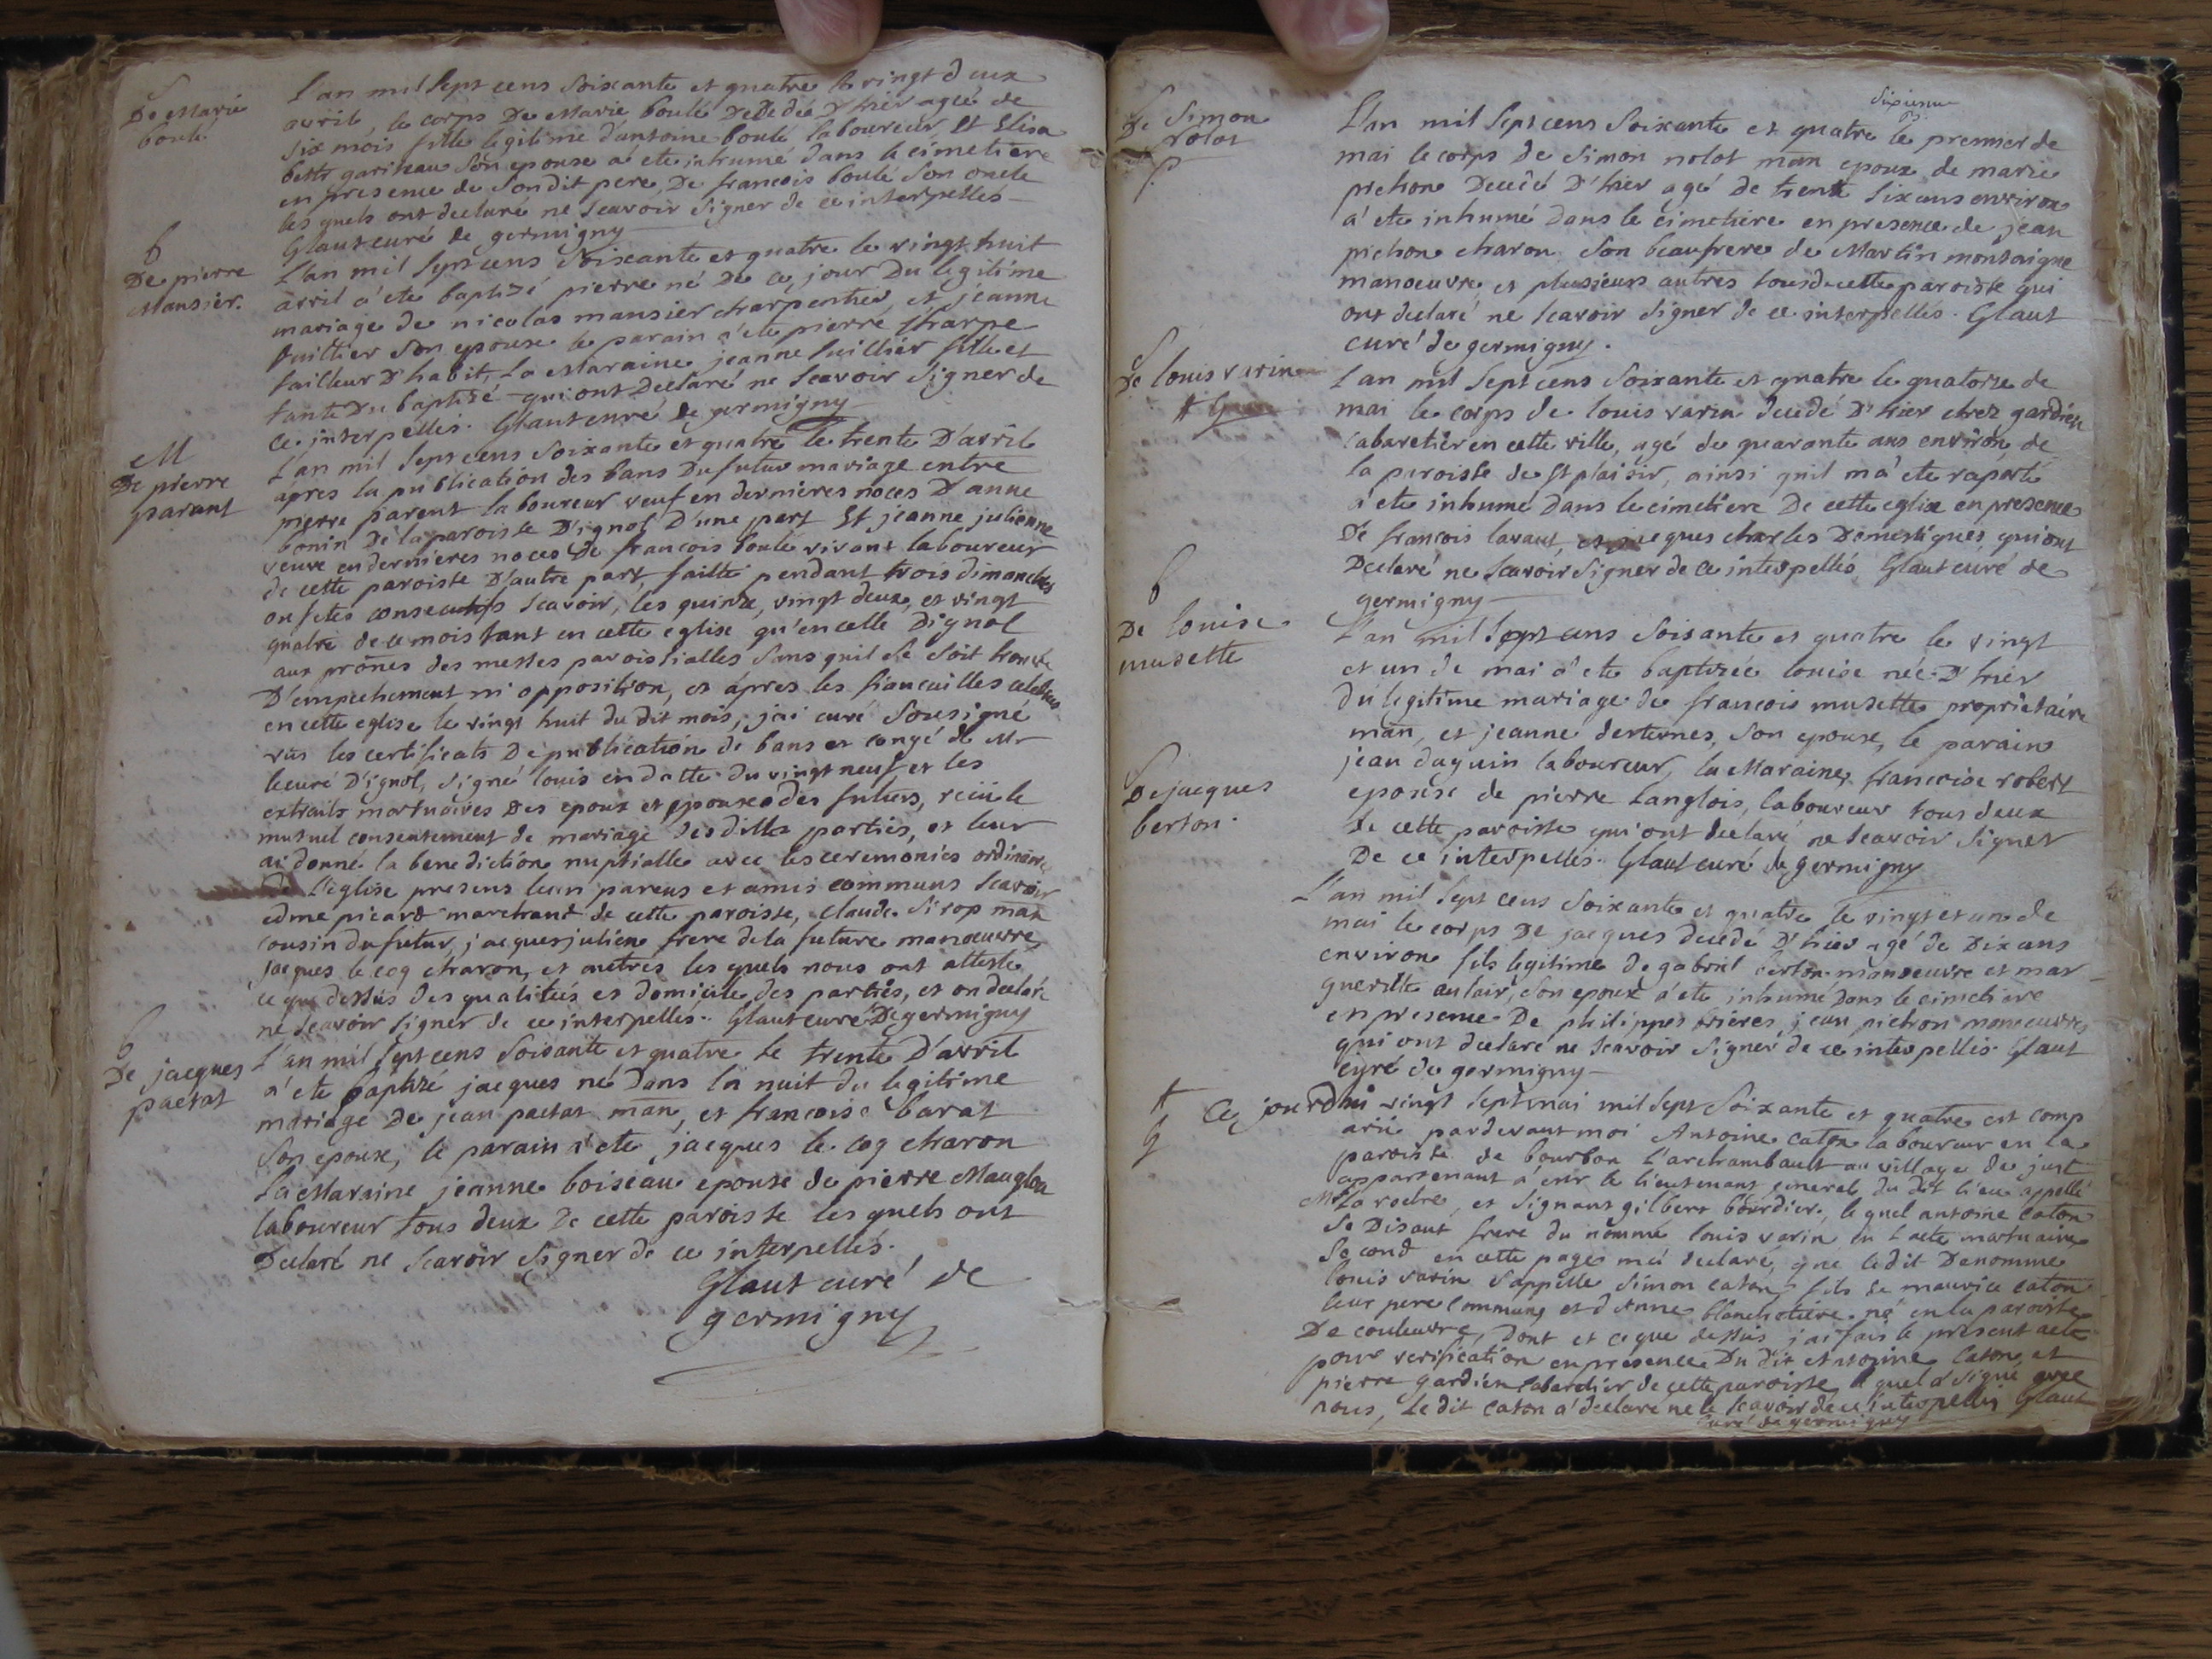 S
De Marie
boulé
L'an mil sept cens soixante et quatre le vingt deux
avril, le corps De Marie boulé Decedée D'hier agée de
six mois fille legitime d'antoine boulé laboureur, Et Elisa
beth gariteau son epouse a été inhumé dans le cimetiere
en presence de son dit pere, De francois boulé son oncle
les quels ont declaré ne scavoir signer de ce interpellés
Glaut curé de germigny
b
De pierre
Mansier.
L'an mil sept cens soixante et quatre le vingt huit
avril a été baptisé pierre né De ce jour Du legitime
mariage de nicolas mansier charpentier, et jeanne
son epouse le parain a été pierre
tailleur D'habit, La Maraine jeanne fille et
tante Du baptisé qui ont Declaré ne scavoir signer de
ce interpellés. Glaut curé de germigny
M
De pierre
parant
L'an mil sept cens soixante et quatre le trente D'avril
apres la publication des bans Du futur mariage entre
pierre parent laboureur veuf en dernières noces D'anne
bonin De la paroisse D'ignol D'une part Et jeanne julienne
veuve en dernieres noces de francois boulé vivant laboureur
de cette paroisse D'autre part, faitte pendant trois dimanches
ou fetes consecutifs scavoir, les quinze, vingt deux, et vingt
quatre de ce mois tant en cette eglise qu'en celle Dignol
aux prônes des messes paroissialles sans quil se soit trouvé
D'empechement ni opposition, et apres les fiancailles celebrées
en cette eglise le vingt huit du dit mois, jai curé sousigné
vüs les certificats De publication de bans et congé de Mr
lecuré D'ignol, signé louis en datte du vingt neuf et les
extraits mortuaires Des epoux et epouses des futurs, recû le
mutuel consentement de mariage des dittes parties, et leur
ai donné la benediction nuptialle avec les ceremonies ordinaires
de l'eglise presens leurs parens et amis communs scavoir
edme picard marchand de cette paroisse, claude sirop man
cousin du futur, jacques julien frere de la future manoeuvre,
jacques le coq charon, et autres les quels nous ont attesté
ce que dessus des qualitées et domicile des parties, et on declaré
ne scavoir signer de ce interpellés. Glaut curé De germigny
b
De jacques
pactat
L'an mil sept cens soixante et quatre le trente D'avril
a été baptizé jacques né Dans la nuit du legitime
mariage De jean pactat man, et francoise barat
son epouse, le parain a été jacques le coq charon
La Maraine jeanne boiseau epouse de pierre
laboureur tous deux De cette paroisse les quels ont
Declaré ne scavoir signer de ce interpellés.
Glaut curé de
germigny
S
De Simon
Nolot
sixieme
L'an mil sept cens soixante et quatre le premier de
mai le corps de simon nolot man epoux de marie
pichon Decedé D'hier agé de trente six ans environ
a été inhumé dans le cimetiere en presence de jean
pichon charon son beaufrere de Martin montaigne
manoeuvre et plusieurs autres tous de cette paroisse qui
ont declaré ne scavoir signer de ce interpellés. Glaut
curé de germigny.
S
De louis varin
L'an mil sept cens soixante et quatre le quatorze de
mai le corps de louis varin decedé D'hier chez gardien
cabaretier en cette ville, agé de quarante ans environ, de
la paroisse de St plaisir, ainsi quil m'a été raporté
a été inhumé Dans le cimetiere De cette eglise en presence
De francois lavaut, et jacques charles Domestiques qui ont
Declaré ne scavoir signer de ce interpellés Glaut curé de
germigny
b
De louise
musette
L'an mil sept cens soixante et quatre le vingt
et un de mai a été baptizée louise née D'hier
du legitime mariage de francois musette proprietaire
man, et jeanne desternes, son epouse, le parain
jean daguin laboureur, la Maraine, francoise robert
epouse de pierre Langlois, laboureur tous deux
de cette paroisse qui ont declaré ne scavoir signer
De ce interpellés. Glaut curé de germigny
S
De jacques
berton.
L'an mil sept cens soixante et quatre le vingt et un de
mai le corps De jacques decedé D'hier agé de Dix ans
environ fils legitime de gabriel berton manoeuvre et mar
gueritte autair, son epoux a été inhumé Dans le cimetiere
en presence De philippes brieres, jean pichon manoeuvres
qui ont declaré ne scavoir signer de ce interpellés Glaut
curé de germigny
Ce jourdhui vingt sept mai mil sept soixante et quatre est comp
aru pardevant moi Antoine caton laboureur en la
paroisse de bourbon L'archambault au village de just
appartenant a le lieutenant general du dit lieu appellé
Mr La roche, et signant gilbert bourdier, le quel antoine caton
se Disant frere du nommé louis varin en l'acte mortuaire
second en cette page ma declaré, que ledit Denommé
louis varin s'appelle simon caton, fils de maurice caton
leur pere commun, et d'Anne blanchetiere né en la paroisse
De couleuvre, dont et ce que dessus jai fais le present acte
pour verification en presence Du dit antoine Caton, et
pierre gardien cabartier de cette paroisse, le quel a signé avec
nous, Le dit caton a declaré ne le scavoir de ce interpellés Glaut
curé de germigny